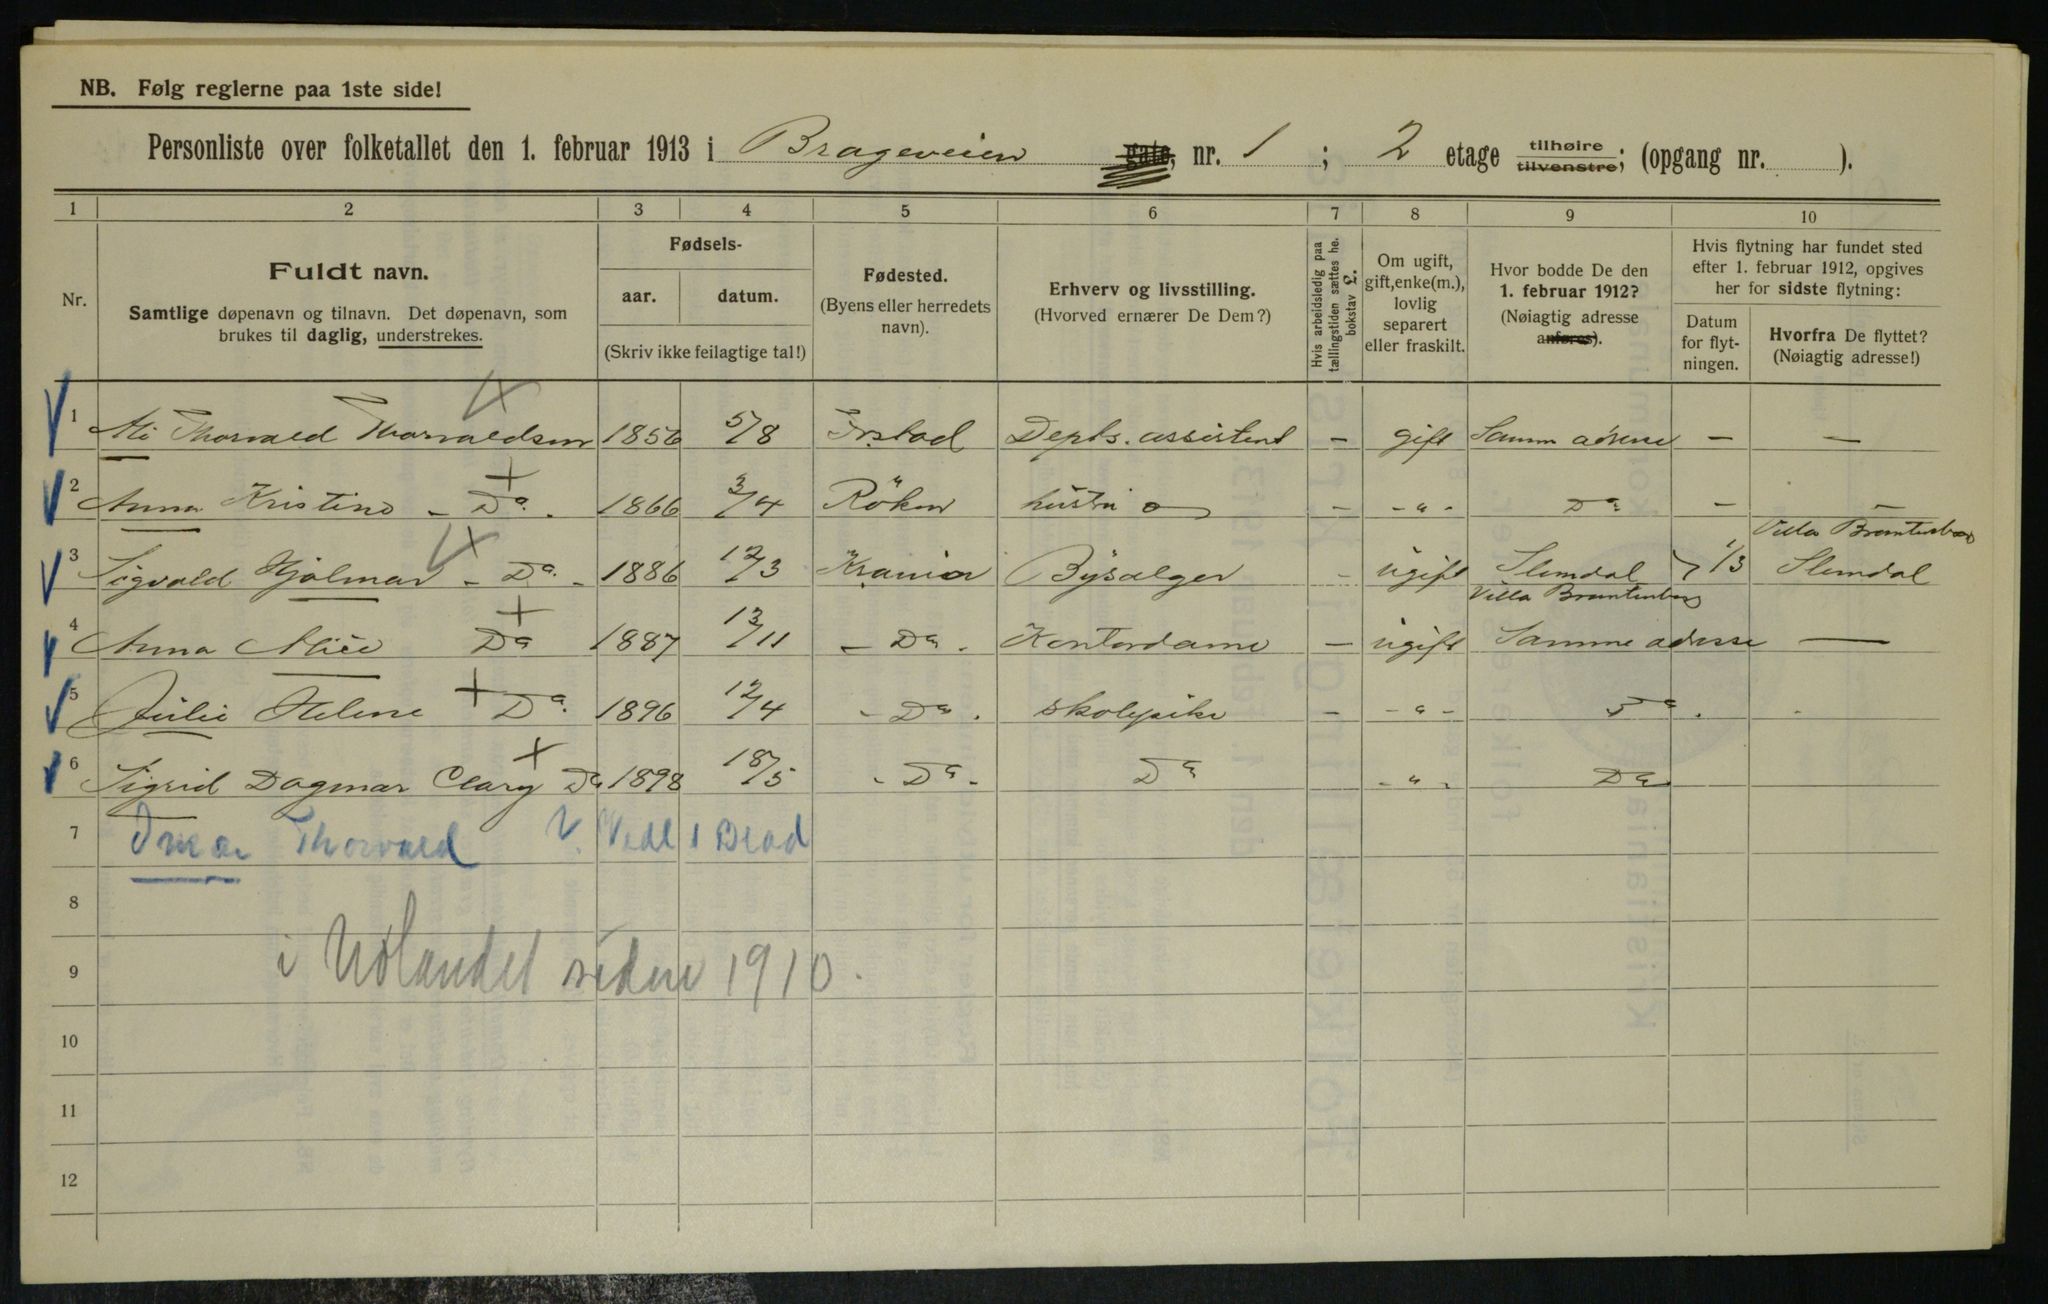 NB. Følg reglerne paa 1ste side!
Personliste over folketallet den 1. februar 1913 i Brageveien gate, nr. 1 ; 2 etage tilhøire tilvenstre; (opgang nr. ).
1 2 3 4 5 6 7 8 9 10
Nr.
Fuldt navn.
Samtlige døpenavn og tilnavn. Det døpenavn, som
brukes til daglig, understrekes.
Fødsels-
aar. datum.
(Skriv ikke feilagtige tal!)
Fødested.
(Byens eller herredets
navn).
Erhverv og livsstilling.
(Hvorved ernærer De Dem?)
Hvis arbeidsledig paa
tællingstiden sættes he.
bokstav £.
Om ugift,
gift, enke(m.),
lovlig
separert
eller fraskilt.
Hvor bodde De den
1. februar 1912?
(Nøiagtig adresse
anføres).
Hvis flytning har fundet sted
efter 1. februar 1912, opgives
her for sidste flytning:
Datum
for flyt-
ningen.
Hvorfra De flyttet?
(Nøiagtig adresse!)
1 Thorvald Thorvaldsen 1856 5/8 Depts. assistent - gift Samm adresse - -
2 Anna Kristine - Do. - 1866 3/4 Røken hustru - - " - Do - -
Villa Brantenborg
3 Sigvald Hjalmar - Do. - 1886 12/3 Krania Bysælger - ugift Slemdal 1/3 Slemdal
Villa Brantenborg
4 Anna Alice Do 1887 13/11 - Do - Kontordame - ugift Samme adresse -
5 Julie Helene Do. 1896 12/4 - Do - skolepike - - " - Do.
6 Sigrid Dagmar Clary Do 1898 18/5 - Do - Do - " - Do
7 Thorvald
8
9 i Udlandet siden 1910.
10
11
12